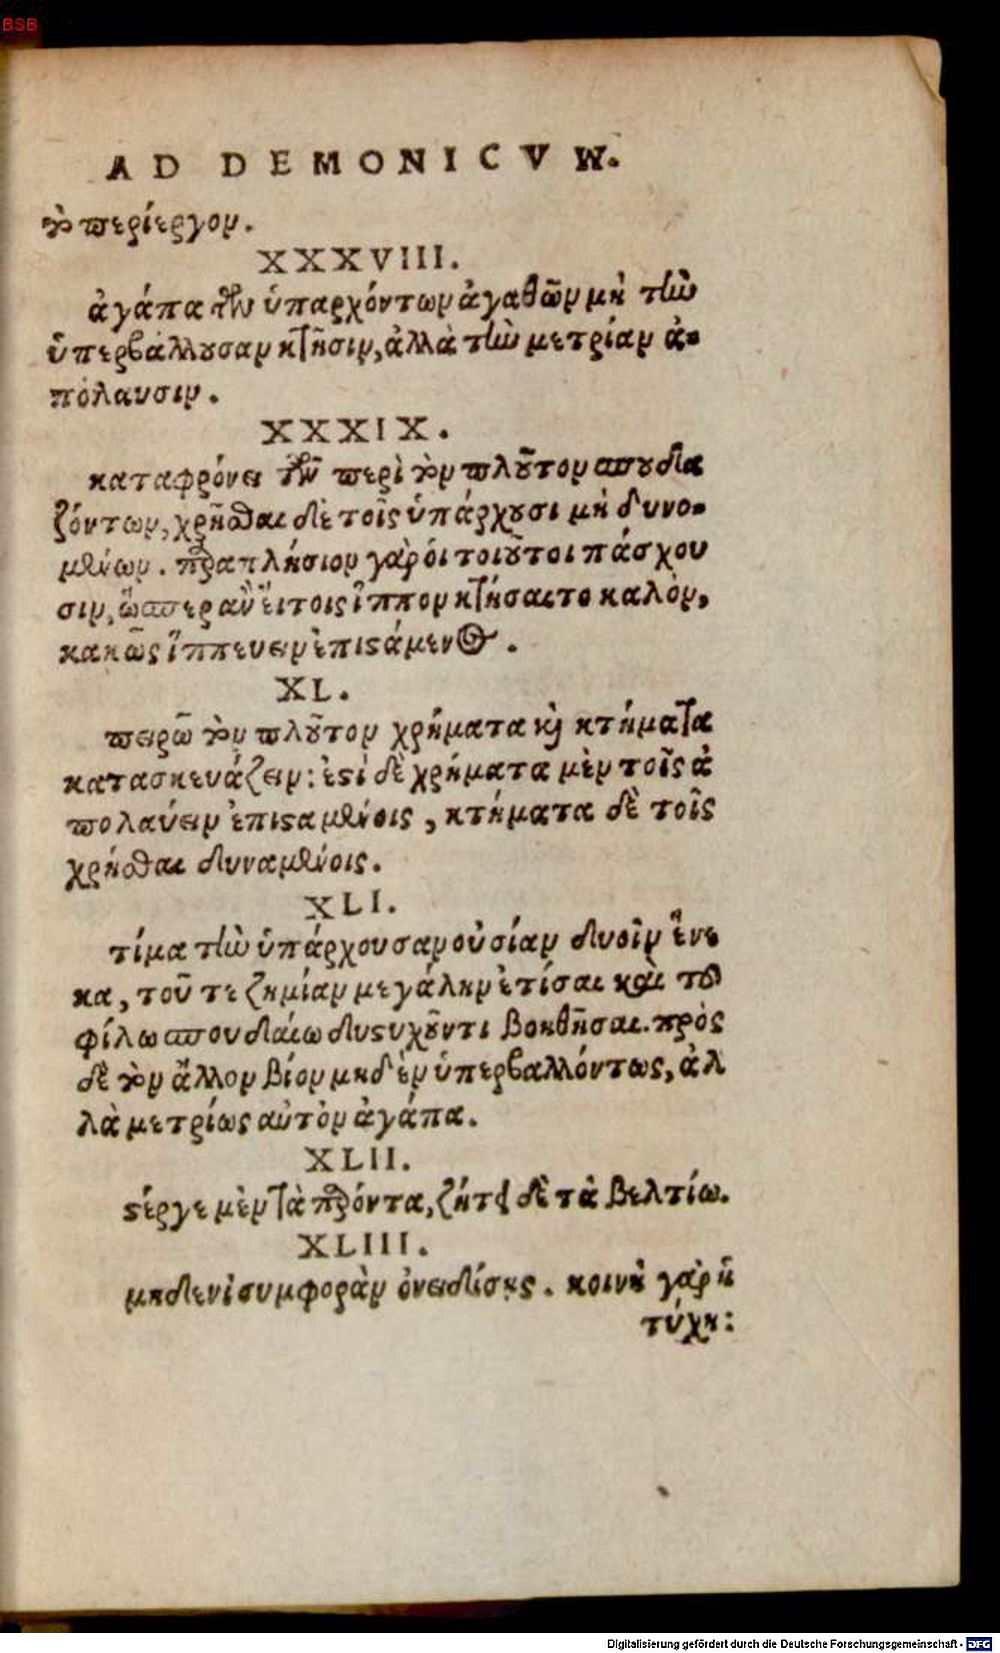 BSB
AD DEMONICVM.
τὸ περίεργον.
XXXVIII.
ἀγάπα τῶν ὑπαρχόντων ἀγαθῶν μὴ τὴν
ὑπερβάλλουσαν κτῆσιν, ἀλλὰ τὴν μετρίαν ἀ-
πόλαυσιν.
XXXIX.
καταφρόνει τῶν περὶ τὸν πλοῦτον σπουδα
ζόντων, χρῆσθαι δὲ τοῖς ὑπάρχουσι μὴ δυνο-
μένων. παραπλήσιον γὰρ οἱ τοιοῦτοι πάσχου
σιν, ὥσπερ ἂν εἴ τοις ἵππον κτήσαιτο καλὸν,
κακῶς ἵππευειν ἐπιστάμενος.
XL.
πειρῶ τὸν πλοῦτον χρήματα καὶ κτήματα
κατασκευάζειν: ἐστὶ δὲ χρήματα μὲν τοῖς ἀ
πολαύειν ἐπισταμένοις, κτήματα δὲ τοῖς
χρῆσθαι δυναμένοις.
XLI.
τίμα τὴν ὑπάρχουσαν οὐσίαν δυοῖν ἕνε
κα, τοῦ τε ζημίαν μεγάλην ἐτίσαι καὶ τῷ
φίλω σπουδαίω δυστυχοῦντι βοηθῆσαι. πρὸς
δὲ τὸν ἄλλον βίον μηδὲν ὑπερβαλλόντως, ἀλ
λὰ μετρίως αὐτὸν ἀγάπα.
XLII.
στέργε μὲν τὰ παρόντα, ζήτει δὲ τὰ βελτίω.
XLIII.
μηδενὶ συμφορὰν ὀνειδίσῃς. κοινὴ γὰρ ἡ
τύχη:
Digitalisierung gefördert durch die Deutsche Forschungsgemeinschaft - DFG